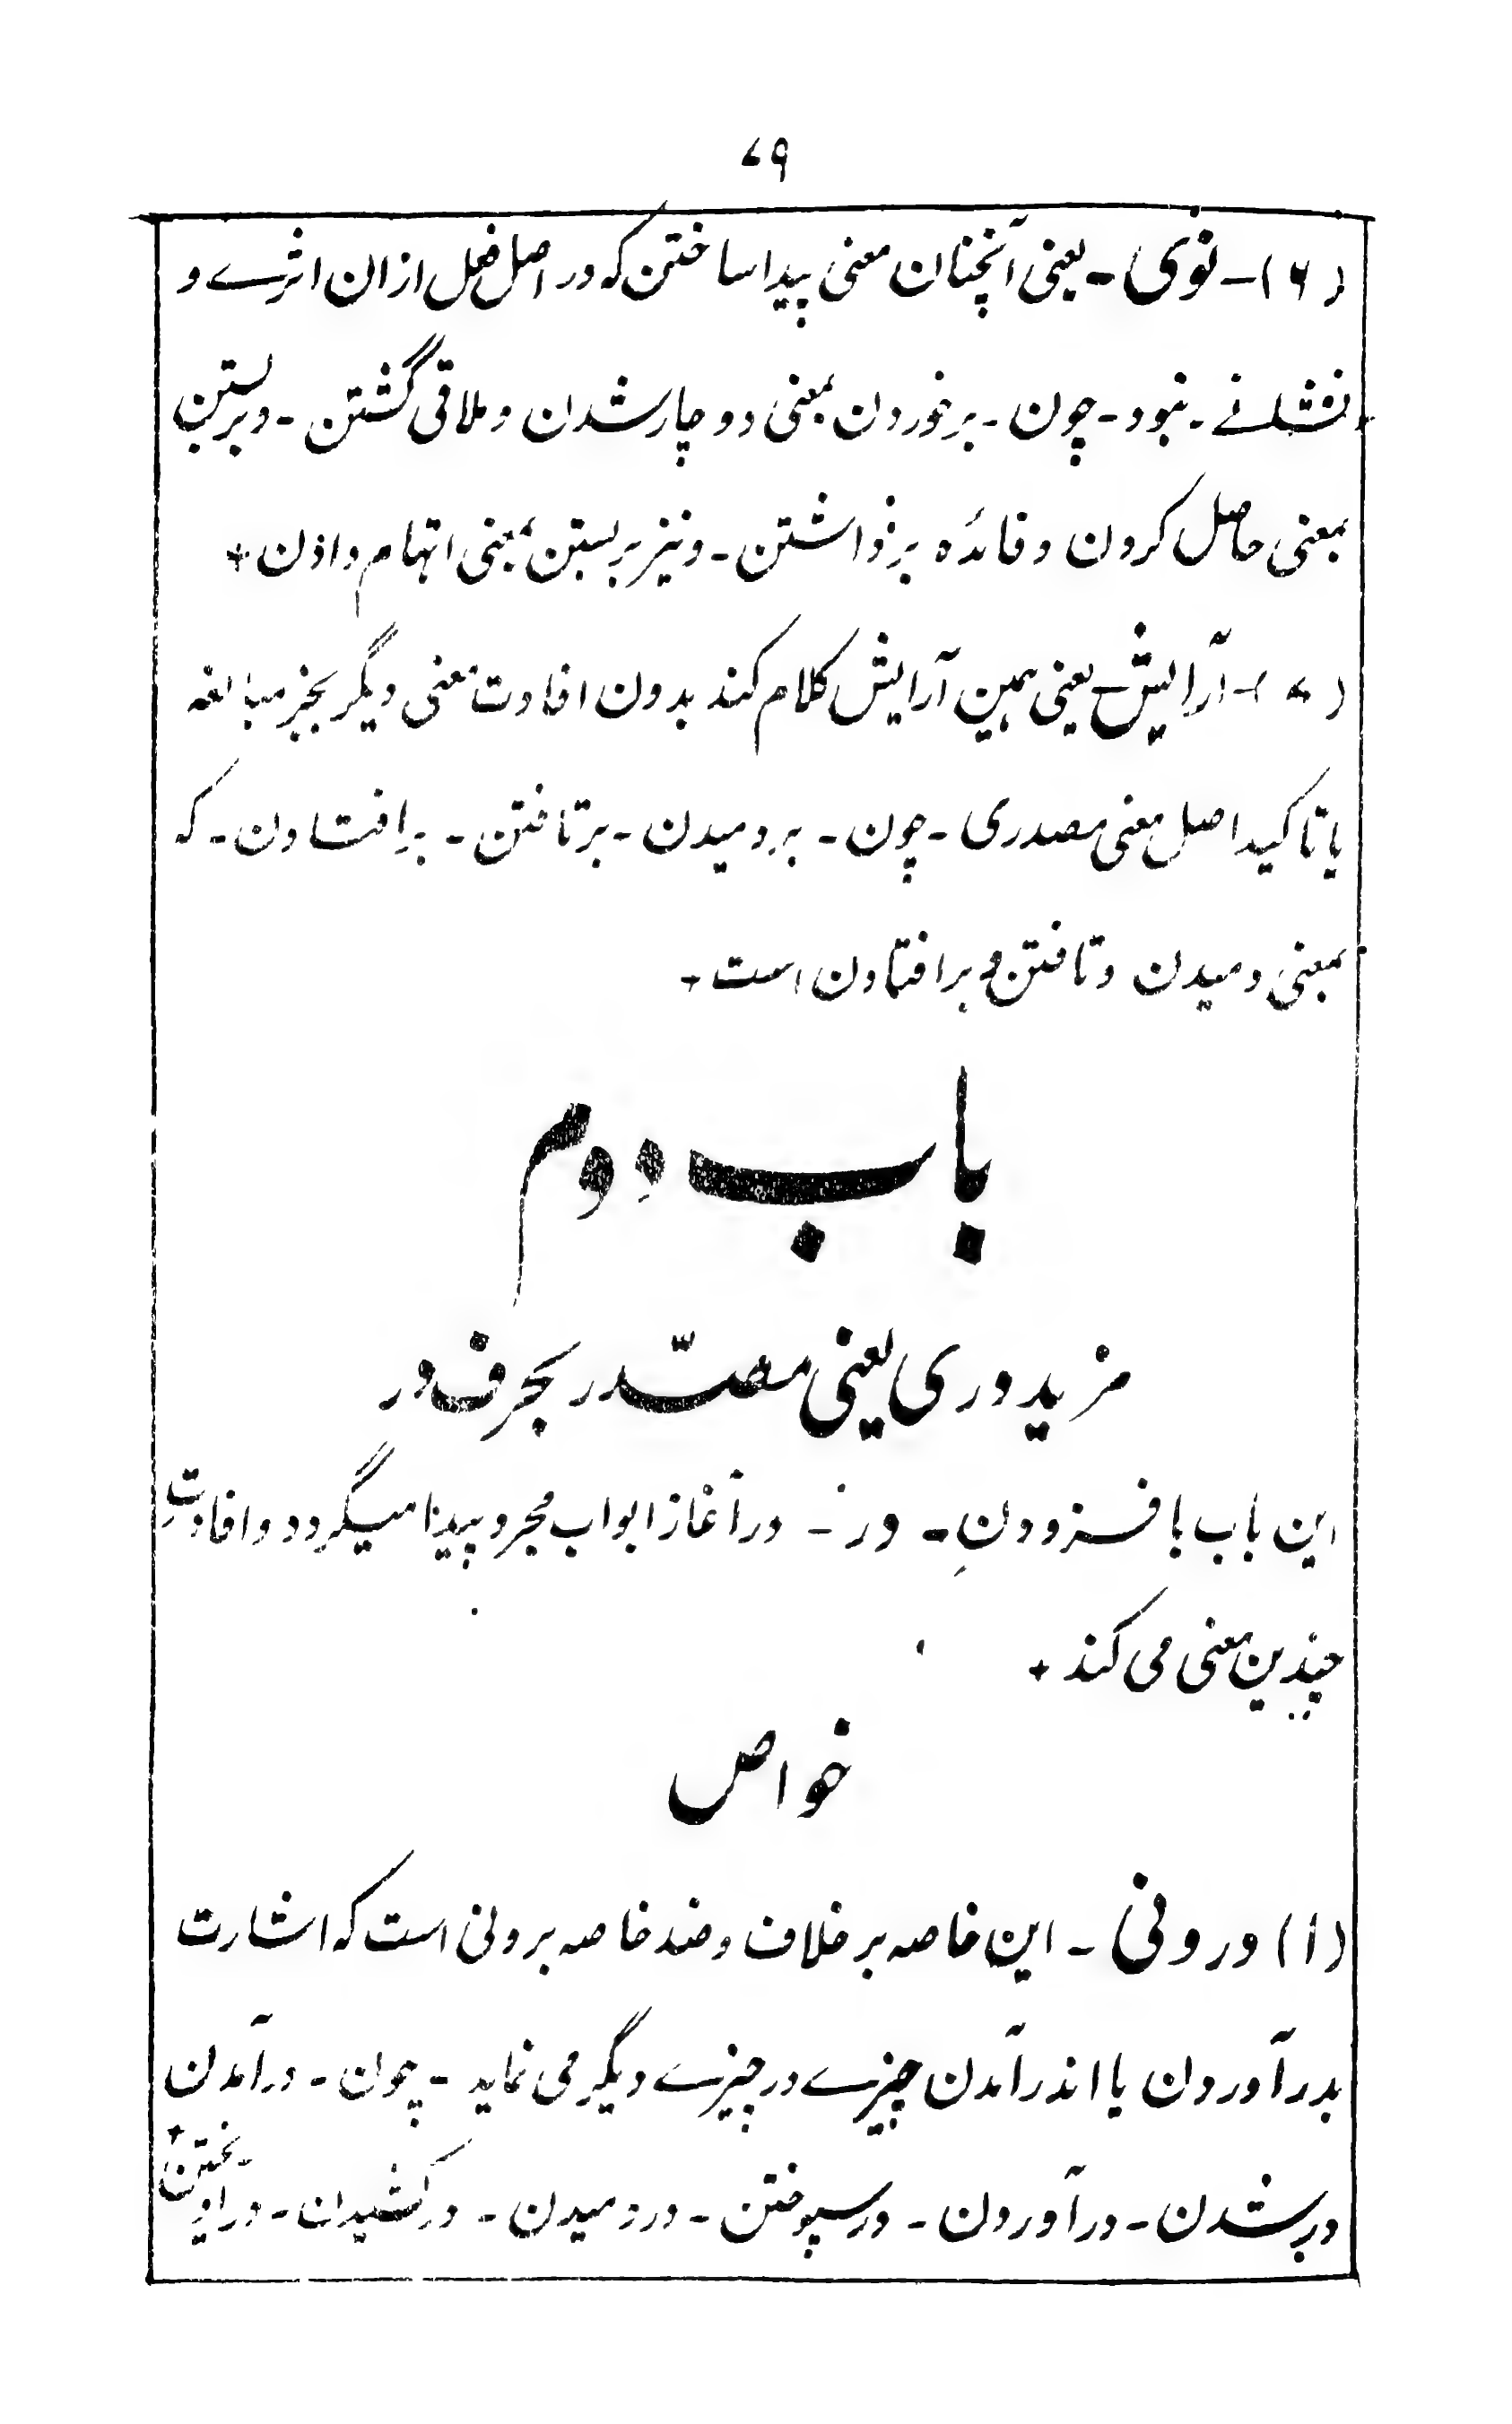 ۷۹
(۶)- نوی - یعنی آنچنان معنی پیدا ساختن که در اصل فعل ازان اثرے و
نشانے - نبود - چون - برخوردن بمعنی دوچار شدن و ملاقی گشتن - و بربستن
بمعنی حاصل کردن و فائدہ برداشتن - و نیز بربستن بمعنی اتہام دادن +
(۷)- آرایش - یعنی ہمین آرایش کلام کند بدون افادت معنی دیگر بجز مبالغہ
یا تاکید اصل معنی مصدری - چون - بردمیدن - برتافتن - برافتادن - کہ
بمعنی دمیدن و تافتن و برافتادن است -
باب دوم
مزید دری یعنی مصدّر بحرف در
این باب بافزودنِ - در - در آغاز ابواب مجرد پیدا میگردد و افادتِ
چندین معنی می کند +
خواص
(۱) درونی - این خاصہ برخلاف و ضد خاصہ برونی است کہ اشارت
بدر آوردن یا اندر آمدن چیزے در چیزے دیگر می نماید - چون - درآمدن
درشدن - درآوردن - درسپوختن - دردمیدن - درکشیدن - درآویختن +